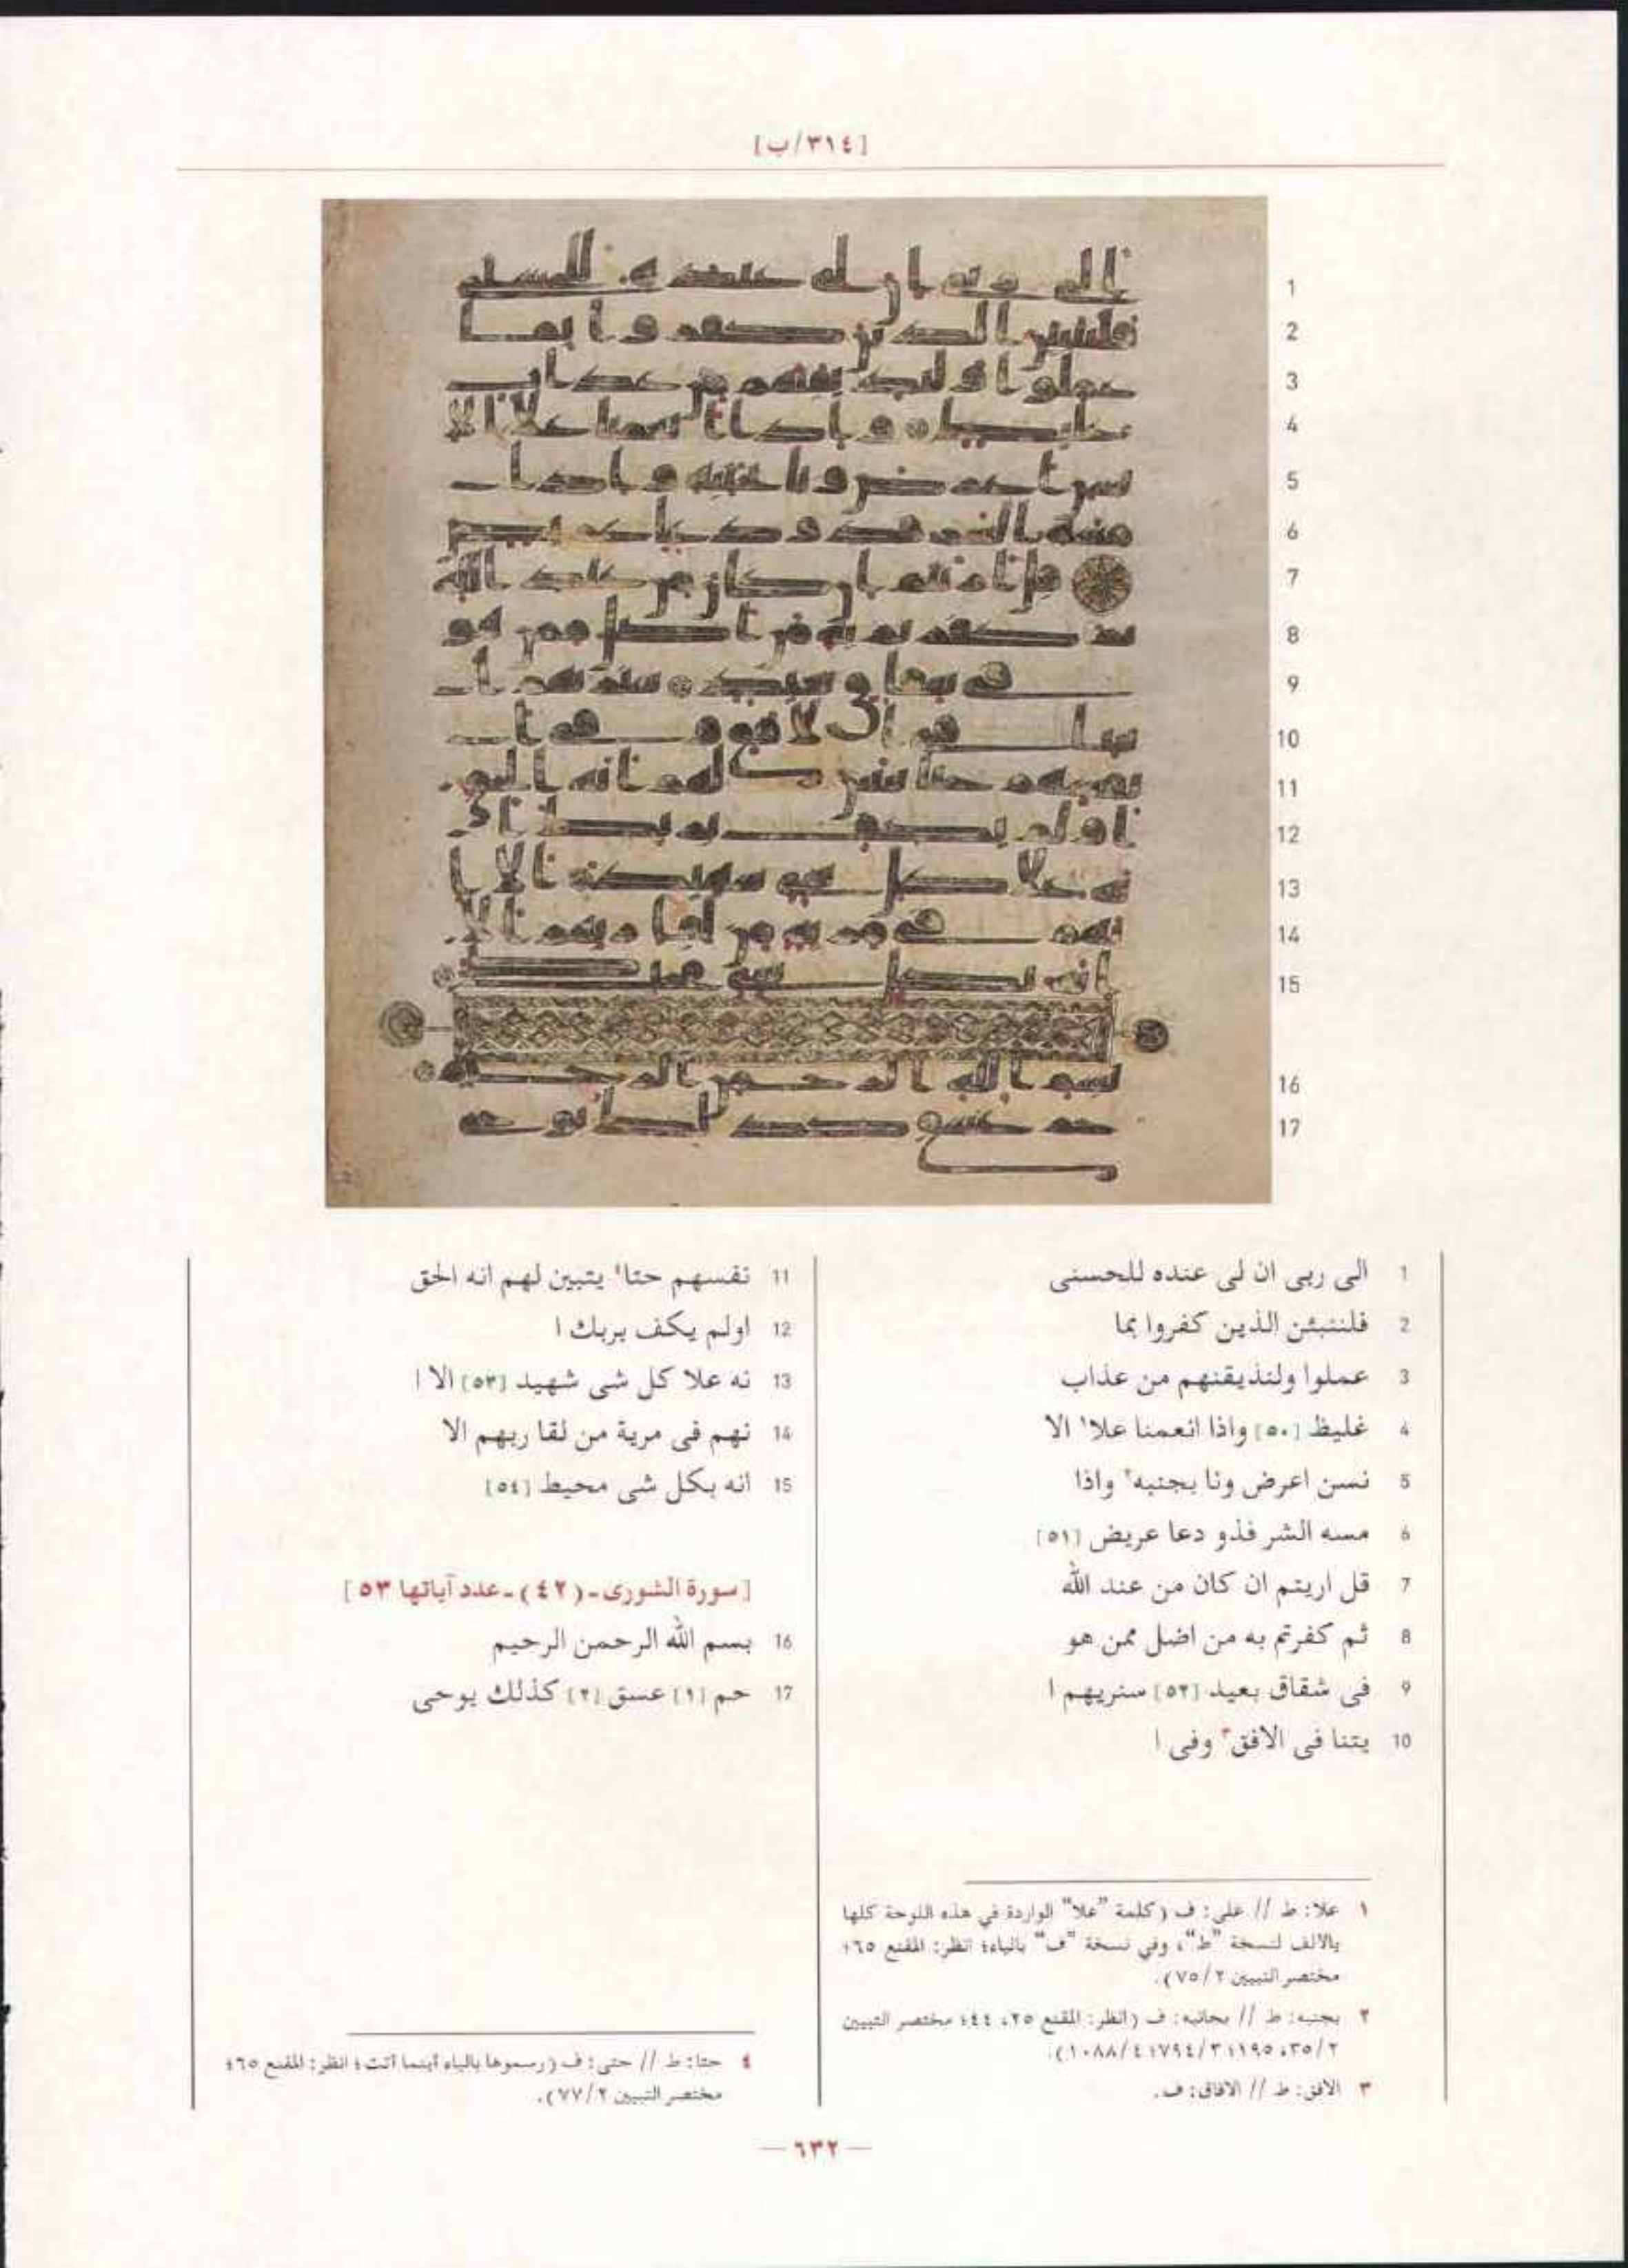 [٣١٤/ب]
1
2
3
4
5
6
7
8
9
10
11
12
13
14
15
16
17
1 الى ربى ان لى عنده للحسنى
2 فلننبئن الذين كفروا بما
3 عملوا ولنذيقنهم من عذاب
4 غليظ [٥٠] واذا انعمنا علا١ الا
5 نسن اعرض ونا بجنبه٢ واذا
6 مسه الشر فذو دعا عريض [٥١]
7 قل اريتم ان كان من عند الله
8 ثم كفرتم به من اضل ممن هو
9 فى شقاق بعيد [٥٢] سنريهم ا
10 يتنا فى الافق٣ وفى ا
11 نفسهم حتا٤ يتبين لهم انه الحق
12 اولم يكف بربك ا
13 نه علا كل شى شهيد [٥٣] الا ا
14 نهم فى مرية من لقا ربهم الا
15 انه بكل شى محيط [٥٤]
[سورة الشورى ـ (٤٢) ـ عدد آياتها ٥٣]
16 بسم الله الرحمن الرحيم
17 حم [١] عسق [٢] كذلك يوحى
١ علا: ط // على: ف (كلمة "علا" الواردة في هذه اللوحة كلها
بالالف لنسخة "ط"، وفي نسخة "ف" بالياء؛ انظر: المقنع ٦٥؛
مختصر التبيين ٧٥/٢).
٢ بجنبه: ط // بجانبه: ف (انظر: المقنع ٢٥، ٤٤؛ مختصر التبيين
٣٥/٢، ١٩٥؛ ٧٩٤/٣؛ ١٠٨٨/٤).
٣ الافق: ط // الافاق: ف.
٤ حتا: ط // حتى: ف (رسموها بالياء أينما أتت؛ انظر: المقنع ٦٥؛
مختصر التبيين ٧٧/٢).
— ٦٣٢ —